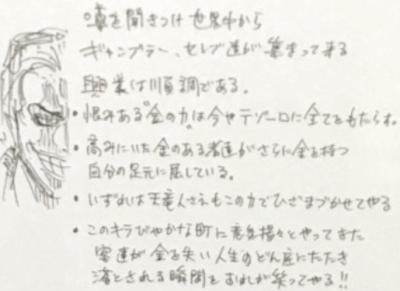 噂を聞きつけ世界中から
ギャンブラー、セレブ達が集まって来る
興業は順調である。
・恨みある"金の力"は今やテゾーロに全てをもたらす。
・高みにいた金のある者達がさらに金を持つ
自分の足元に屈している。
・いずれは天竜人さえもこの力でひざまづかせてやる
・このキラびやかな町に意気揚々とやってきた
客達が金を失い人生のどん底にたたき
落とされる瞬間をおれが笑ってやる!!